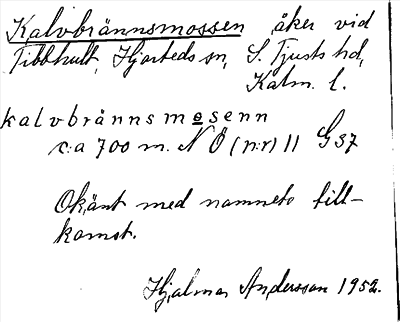 Kalvbrännsmossen åker vid
Tibbhult, Hjorteds sn, S. Tjusts hd,
Kalm. l.
kalvbrännsmosenn
c:a 700 m. NÖ (n:r) 11 G 37
Okänt med namnets till-
komst.
Hjalmar Andersson 1952.